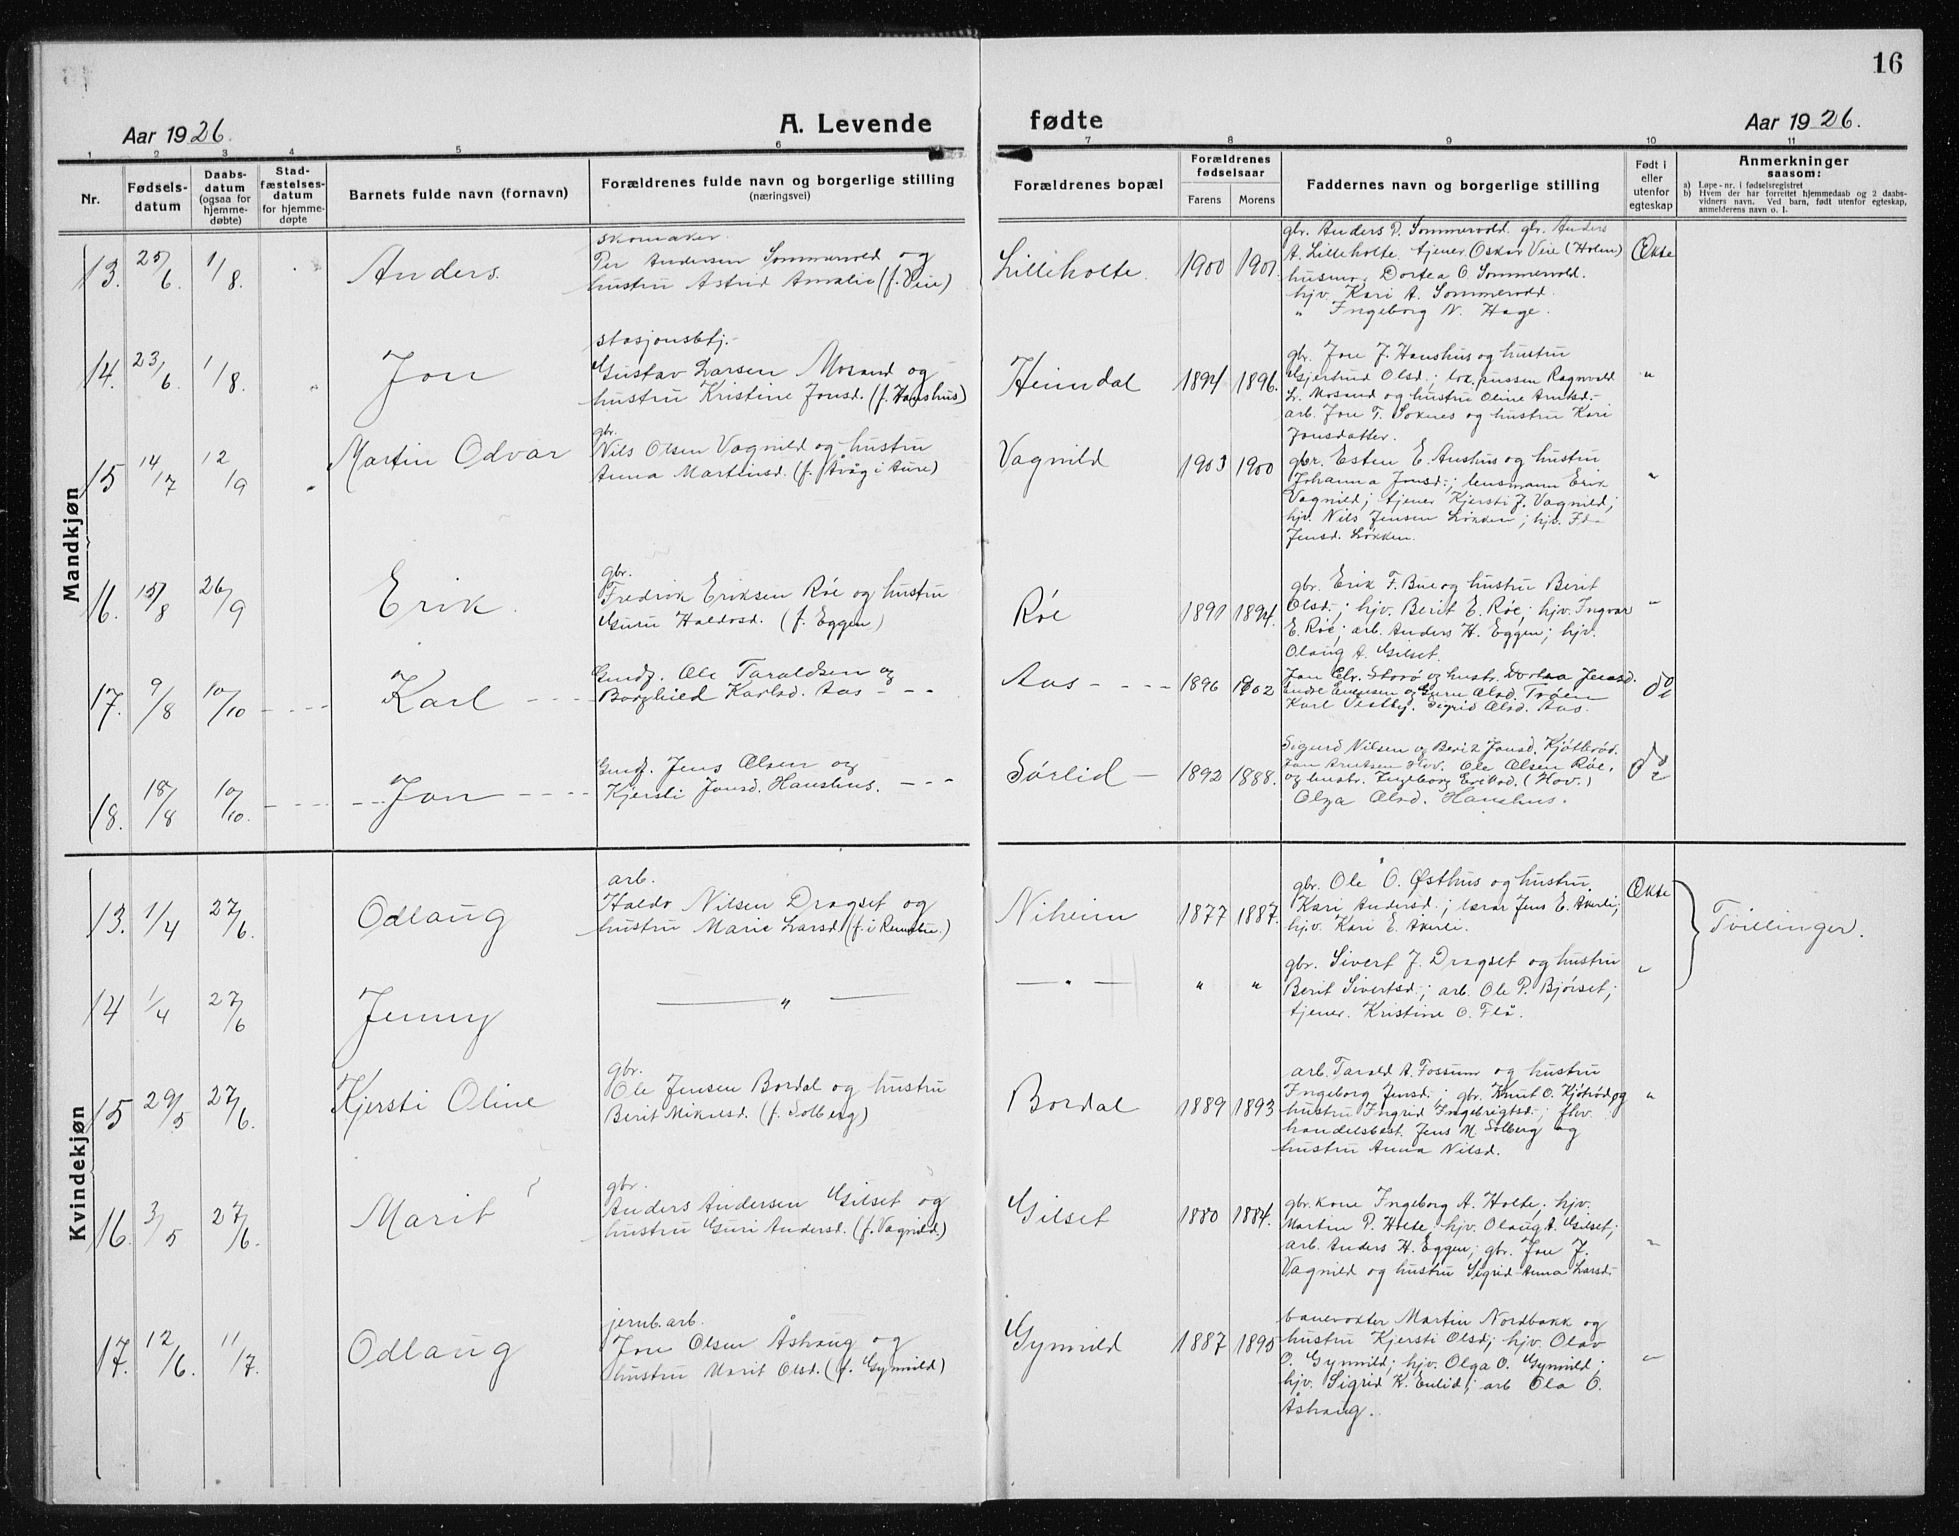 16
Aar 1926. A. Levende fødte Aar 1926.
1 2 3 4 5 6 7 8 9 10 11
Nr.
Fødsels-
datum
Daabs-
datum
(ogsaa for
hjemme-
døbte)
Stad-
fæstelses-
datum
for hjemme-
døpte
Barnets fulde navn (fornavn)
Forældrenes fulde navn og borgerlige stilling
(næringsvei)
Forældrenes bopæl
Forældrenes
fødselsaar
Farens Morens
Faddernes navn og borgerlige stilling
Født i
eller
utenfor
egteskap
Anmerkninger
saasom:
a) Løpe-nr. i fødselsregistret
b) Hvem der har forrettet hjemmedaab og 2 daabs-
vidners navn. Ved barn, født utenfor egteskap,
anmelderens navn o. l.
Mandkjøn
13. 25/6 1/8. Anders.
skomaker.
Per Andersen Sommervold og
hustru Astrid Amalie (f. Veie)
Lilleholte. 1900 1901.
gbr. Anders P. Sommervold. gbr. Anders
A. Lilleholte, tjener Oskar Veie (Holen)
husmor Dortea O. Sommervold.
hjv. Kari A. Sommervold.
" Ingeborg N. Hage.
Ekte
14. 23/6. 1/8. Jon
stasjonsbtj.
Gustav Larsen Mosand og
hustru Kristine Jonsd. (f. Hanshus)
Heimdal 1894 1896.
gbr. Jon J. Hanshus og hustru
Gjertrud Olsd.; lok.pussen Ragnvald
L. Mosand og hustru Oline Arntsd.-
arb. Jon T. Soknes og hustru Kari
Jonsdatter.
"
15 14/7 12/9 Martin Odvar
gbr.
Nils Olsen Vagnild og hustru
Anna Martinsd. (f. Avåg i Aure)
Vagnild 1903 1900
gbr. Esten E. Aushus og hustru
Johanna Jonsd.; lensmann Erik
Vagnild; tjener Kjersti J. Vagnild;
hjv. Nils Jensen Løkken; hjv. Ida
Jensd. Løkken.
"
16. 15/8 26/9 Erik.
gbr.
Fredrik Eriksen Røe og hustru
Guru Haldosd. (f. Eggen)
Røe 1891 1894.
gbr. Erik F. Bue og hustru Berit
Olsd.; hjv. Berit E. Røe; hjv. Ingvar
E. Røe; arb. Anders H. Eggen; hjv.
Olaug A. Gilset.
"
17. 9/8 10/10 Karl
Gmdj. Ole Taraldsen og
Borghild Karlsd. Aas
Aas 1896 1902
Jon Storø og hustr. Dortea Jensd.
Endre Evensen og Guru Olsd. Trøen
Karl Vestby. Sigrid Olsd. Aas.
do
18. 18/8 10/10. Jon
Gmdj. Jens Olsen og
Kjersti Jonsd. Hanshus.
Sørlid 1892 1888.
Sigurd Nilsen og Berit Jonsd. Kjøtrød.
Jon Arntsen Hov. Ole Olsen Røe,
og hustr. Ingeborg Eriksd. (Hov.)
Olga Olsd. Hanshus.
do
Kvindekjøn
13. 1/4 27/6. Odlaug
arb.
Haldo Nilsen Dragset og
hustru Marie Larsd. (f. i Rennebu.)
Niheim 1877 1887.
gbr. Ole O. Østhus og hustru
Kari Andersd.; lærar Jens E. Akerli;
hjv. Kari E. Akerli.
Ekte
Tvillinger.
14 1/4 27/6 Jenny
— " —
— " — " "
gbr. Sivert J. Dragset og hustru
Berit Sivertsd.; arb. Ole P. Bjørset;
tjener. Kristine O. Flå.
"
15 29/5 27/6. Kjersti Oline
gbr.
Ole Jensen Bordal og hustru
Berit Mikelsd. (f. Solberg)
Bordal 1889 1893
arb. Tarald A. Fossum og hustru
Ingeborg Jensd.; gbr. Knut O. Kjøtrød og
hustru Ingrid Ingebrigtsd.; flov.
handelsbest. Jens M. Solberg og
hustru Anna Nilsd.
"
16. 3/5 27/6. Marit
gbr.
Anders Andersen Gilset og
hustru Guri Andersd. (f. Vagnild.)
Gilset 1880 1884.
gbr.kone Ingeborg A. Holte; hjv.
Martin P. Holte; hjv. Olaug A. Gilset;
arb. Anders H. Eggen; gbr. Jon J.
Vagnild og hustru Sigrid-Anna Larsd.-
"
17. 12/6. 11/7. Odlaug
jernb.arb.
Jon Olsen Åshaug og
hustru Marit Olsd. (f. Gynnild)
Gynnild 1887 1895
banevokter Martin Nordbakk og
hustru Kjersti Olsd; hjv. Olav
O. Gynnild; hjv. Olga O. Gynnild;
hjv. Sigrid K. Enlid; arb Ola O.
Åshaug.
"